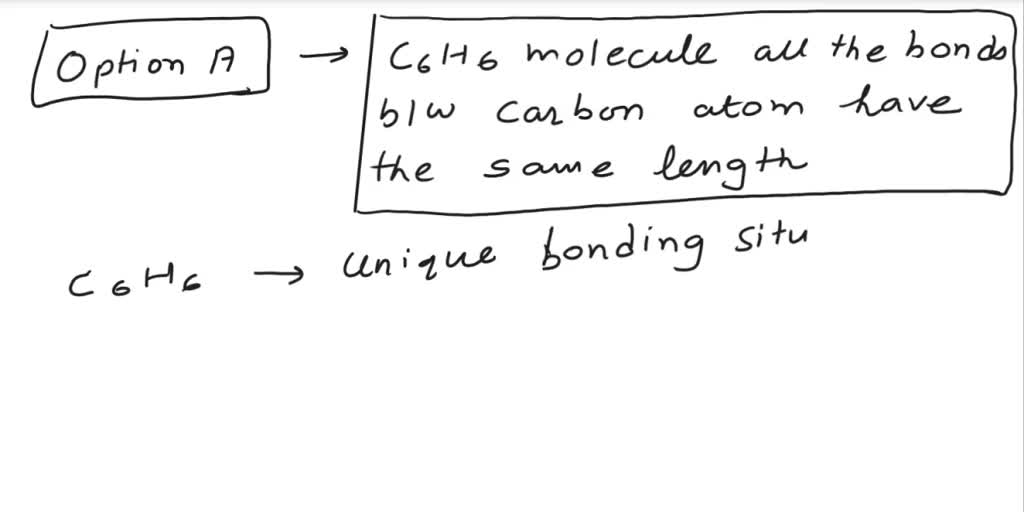 Option A → C6H6 molecule all the bonds
b/w carbon atom have
the same length
C6H6 → unique bonding situ